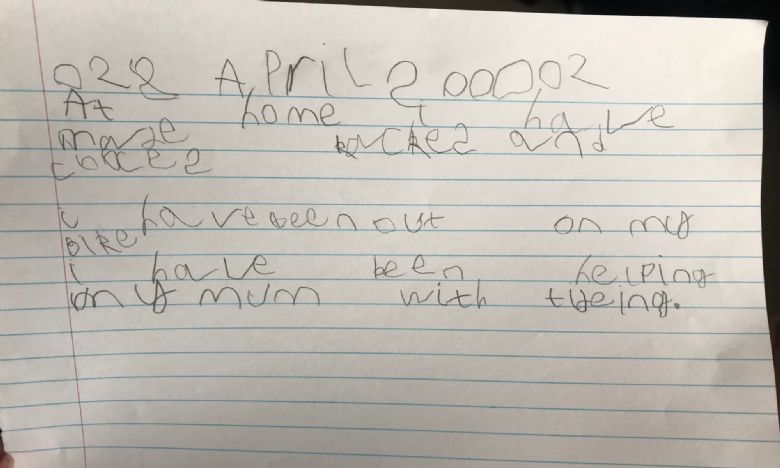 022 APril 200002
At home i have
made and
i have been out on my
bike
i have been helping
my mum with